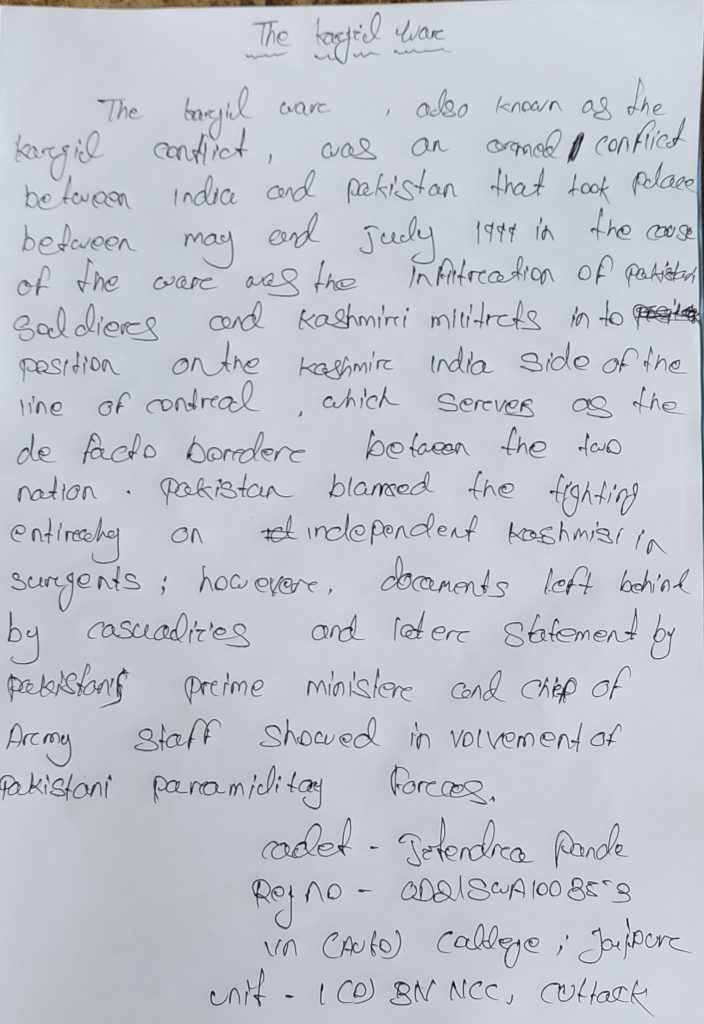 The kargil ware
The kargil ware , also known as the
kargil conflict, was an armed conflict
between india and pakistan that took pelace
between may and judy 1999 in the cause
of the ware was the infiltrecation of pakistan
soldieres and kashmiri militrets in to
position on the kashmire india side of the
line of contreal , which sereves as the
de facto bordere between the two
nation . pakistan blamed the fighting
entirealy on independent kashmiri in
surgents ; howevere, documents left behind
by casuadities and latere statement by
pakistan's preime ministere and chief of
Army staff showed in volvement of
pakistani paramilitay forces.
cadet - Jetendrea Pande
Reg no -
vn (Auto) Calldege ; Jajpore
unit - 1 (O) BN NCC, cuttack